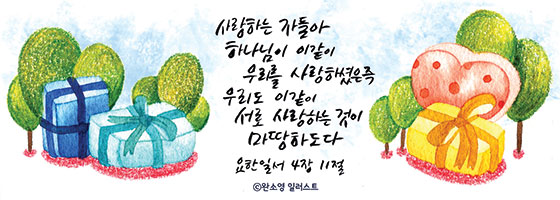 사랑하는 자들아
하나님이 이같이
우리를 사랑하셨은즉
우리도 이같이
서로 사랑하는 것이
마땅하도다
요한일서 4장 11절
©완소영 일러스트